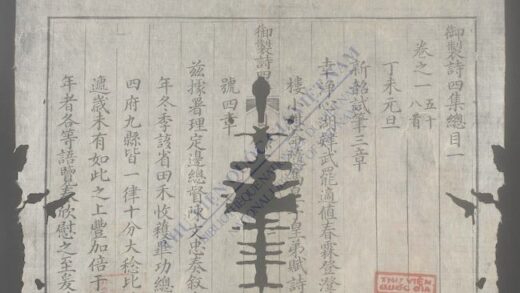 御製詩四集總目一
卷之一 五十八首
丁未元旦
新韶試筆三章
幸淨心湖肄武罷適值春霖登澄
樓 皇弟賦詩
御製詩四
號四章
茲據署理定邊總督陳文忠奏叙
年冬季該省田禾收穫畢功總
四府九縣皆一律十分大稔比
遞歲未有如此之上豐加倍于
年者各等語覽奏欣慰之至爰
THƯ VIỆN
QUỐC GIA